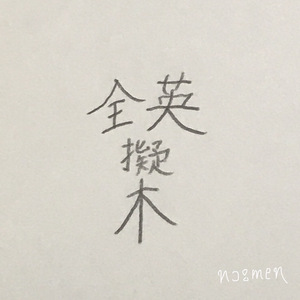 全英
擬
木